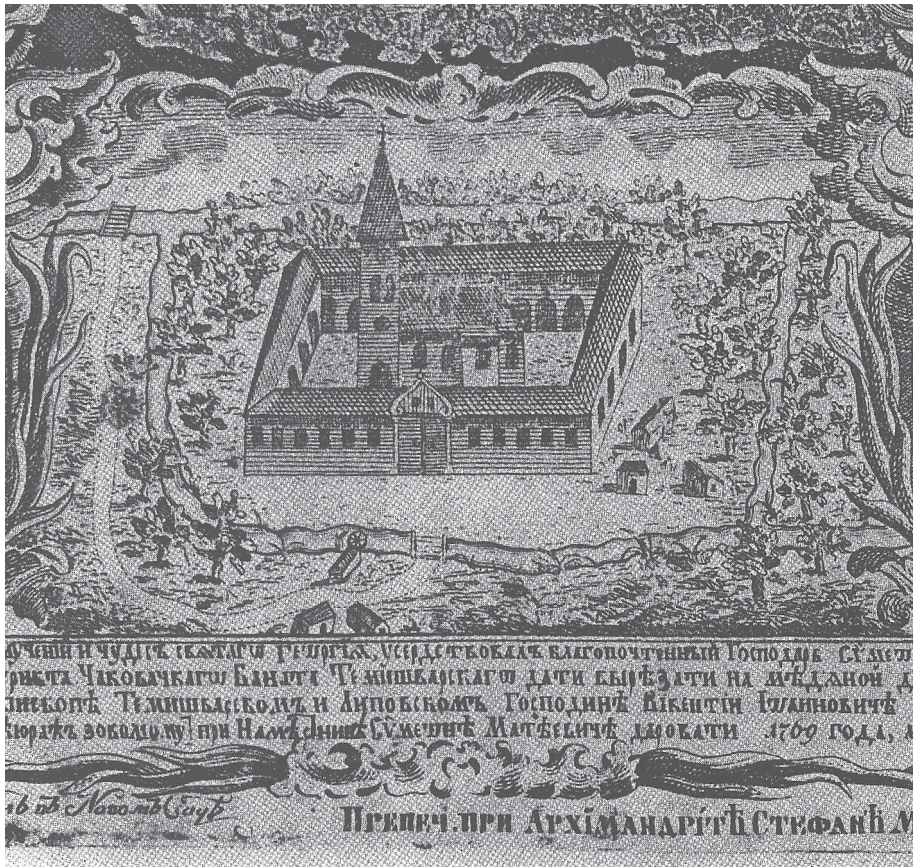 чудесъ свѧтагѡ Геѡргїѧ, усердствовалъ благопочтенный Господарь
Чаковачкагѡ Баната Темишварскагѡ дати вырѣзати на мѣдяной
Темишвасскомъ и Липовскомъ Господинѣ Вікентїи Іѡанновичѣ
при Намѣсникѣ Сѵмеѡнѣ Матѣевичѣ даровати .1769 года,
въ Новомъ Садѣ
Препеч. при Архїмандрітѣ Стефанѣ